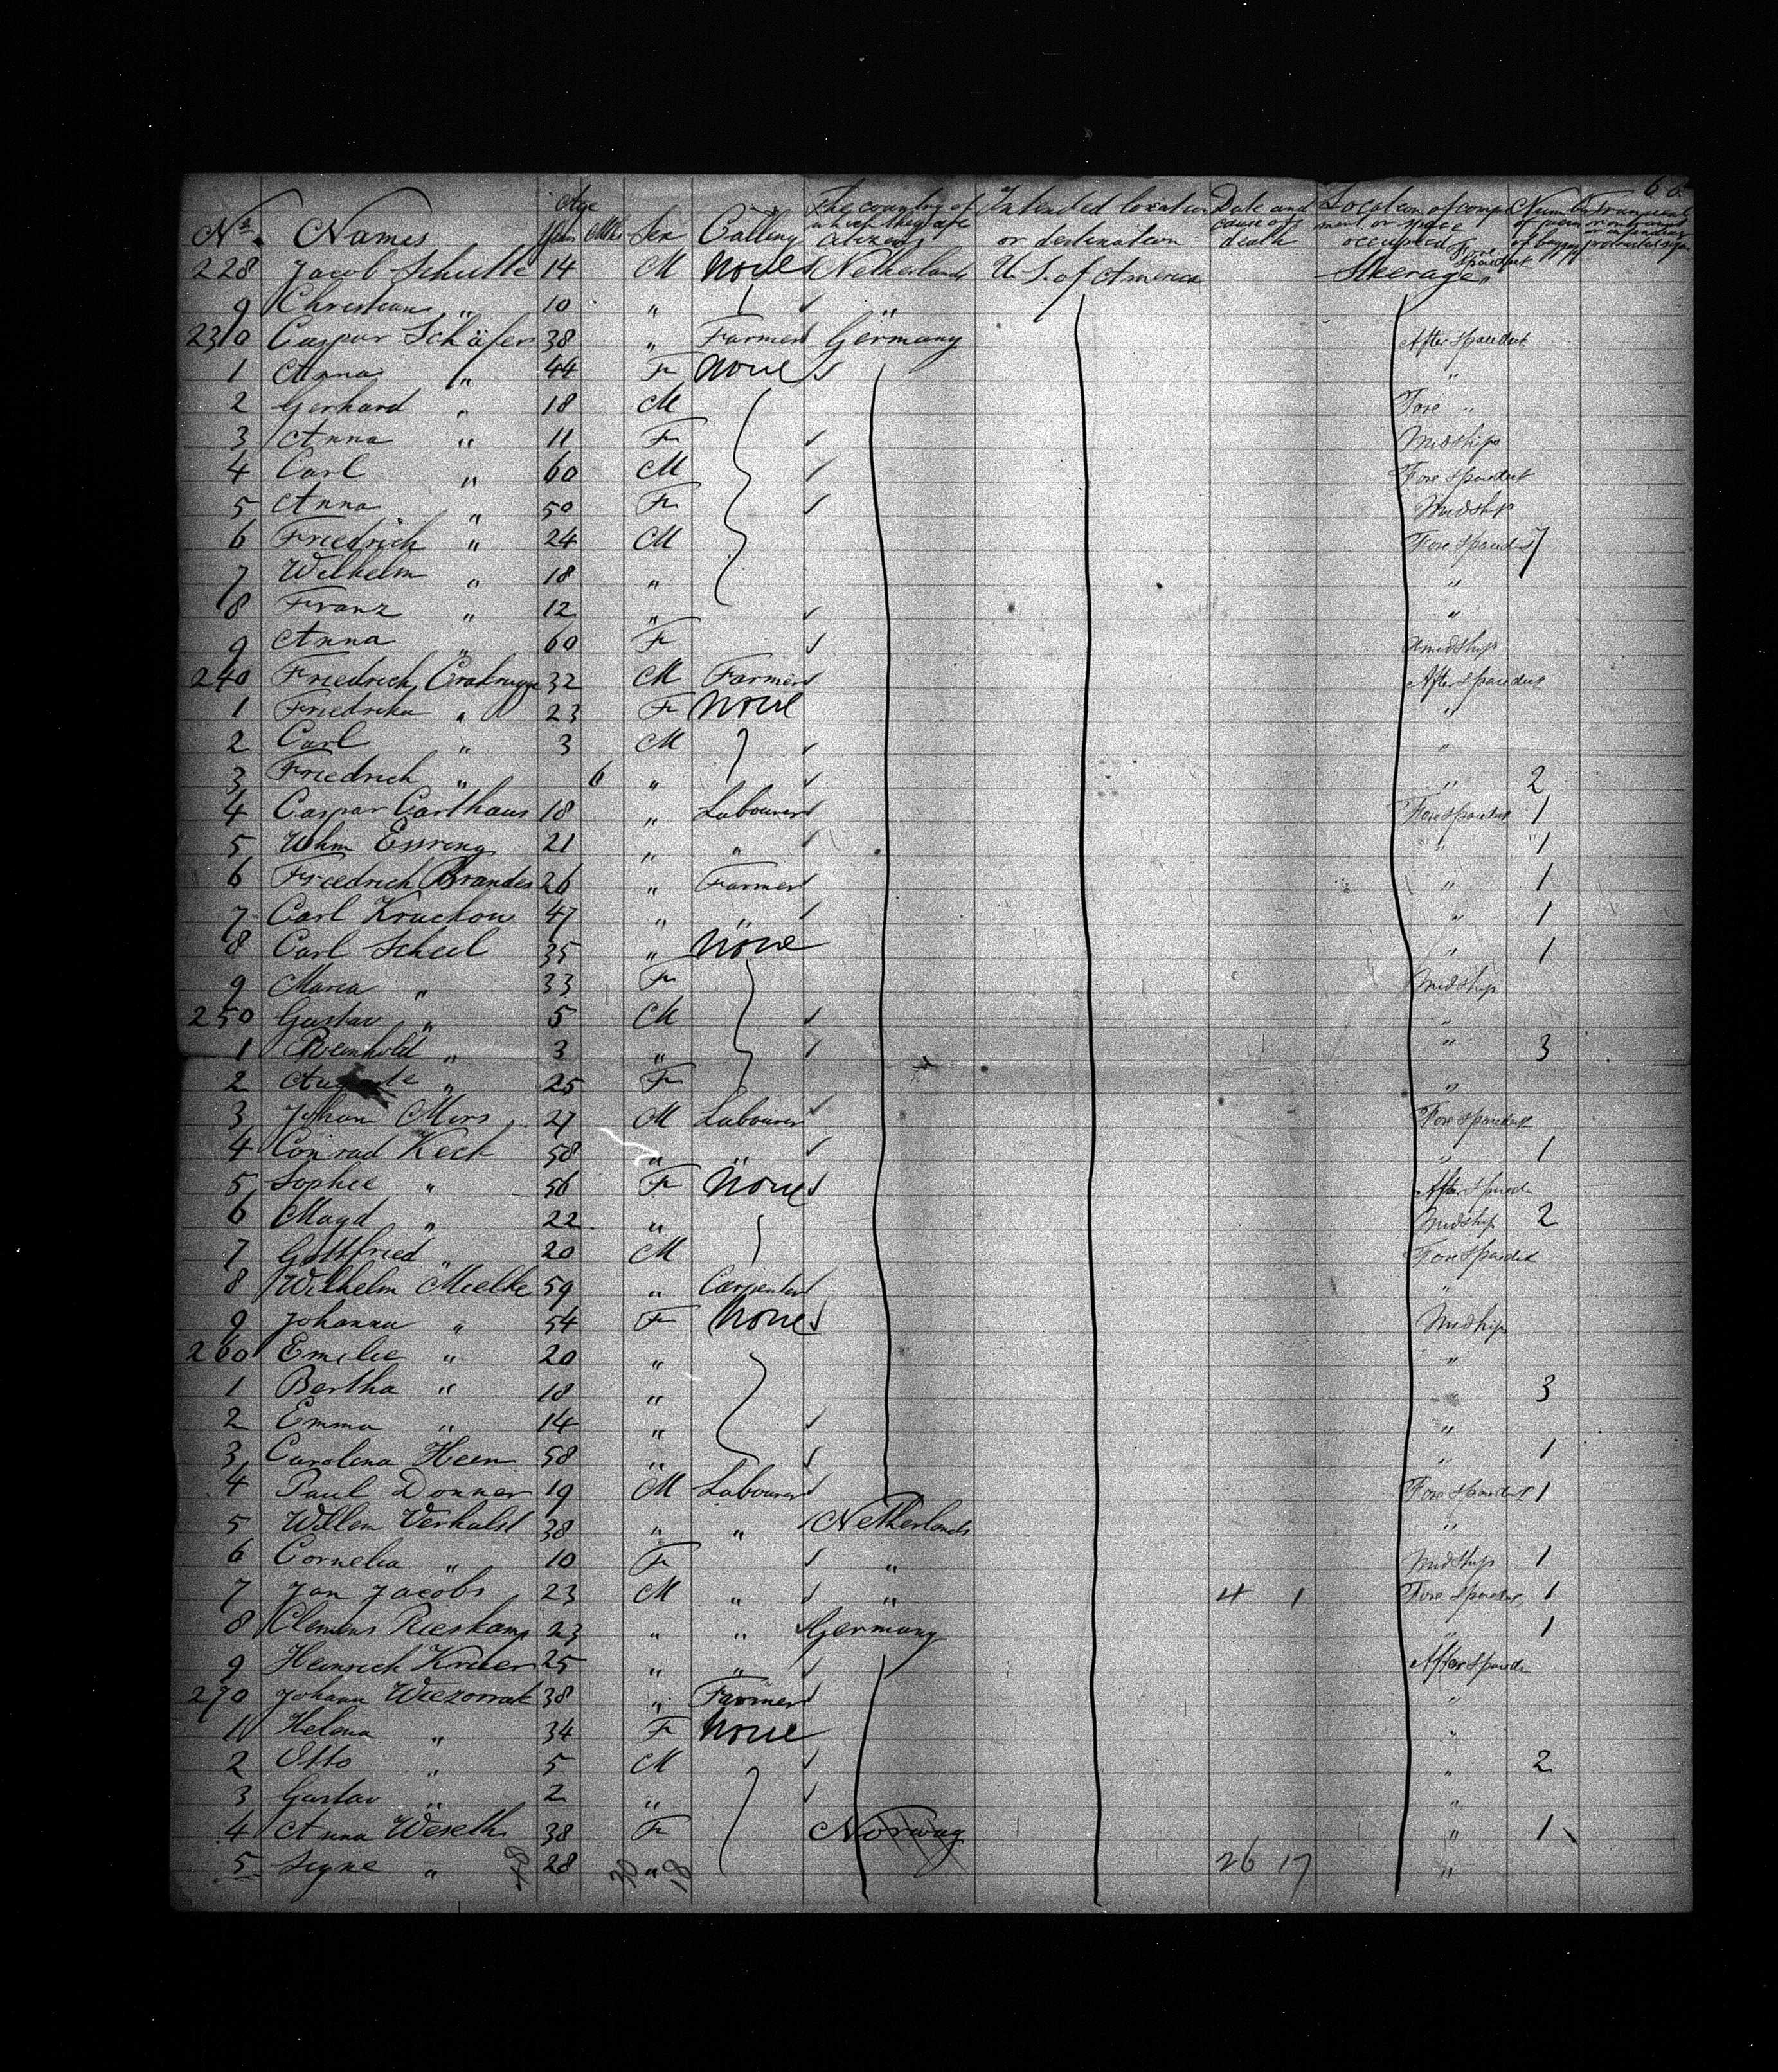 66
Nº. Names Age Years Mths Sex Calling The country of which they are citizens Intended location or destination Date and cause of death Location of compartment or space occupied Number of pieces of baggage
228 Jacob Schulte 14 M None Netherlands U.S. of America Steerage Fore Spardeck
9 Christian " 10 " "
230 Caspar Schäfer 38 " Farmer Germany After Spardeck
1 Anna " 44 F None "
2 Gerhard " 18 M Fore "
3 Anna " 11 F Midships
4 Carl " 60 M Fore Spardeck
5 Anna " 50 F Midship
6 Friedrich " 24 M Fore Spardeck 7
7 Wilhelm " 18 " "
8 Franz " 12 " "
9 Anna " 60 F Amidship
240 Friedrich 32 M Farmer After Spardeck
1 Friedrika " 23 F None "
2 Carl " 3 M "
3 Friedrich " 6 " " 2
4 Caspar Carthaus 18 " Labourer Fore Spardeck 1
5 Whm Essring 21 " " " 1
6 Friedrich Brandes 26 " Farmer " 1
7 Carl Krackow 47 " " " 1
8 Carl Scheel 35 " None " 1
9 Maria " 33 F Midship
250 Gustav " 5 M "
1 Reinhold " 3 " " 3
2 Auguste " 25 F "
3 Johan Mors 27 M Labourer Fore Spardeck
4 Conrad Keck 58 " " " 1
5 Sophie " 56 F None After Sparde
6 Magd " 22 " Midship 2
7 Gottfried " 20 M Fore Spardeck
8 Wilhelm Mielke 59 " Carpenter "
9 Johanna " 54 F None Midship
260 Emilie " 20 " "
1 Bertha " 18 " " 3
2 Emma " 14 " "
3 Carolina Heen 58 " " 1
4 Paul Donner 19 M Labourer Fore Spardeck 1
5 Willem Verhulst 38 " " Netherlands "
6 Cornelia " 10 F " Midship 1
7 Jan Jacobs 23 M " " 4 1 Fore Spardeck 1
8 Clemens Rieskamp 23 " " Germany " 1
9 Heinrich Krieer 25 " " After Sparde
270 Johann Wiezorrak 38 " Farmer "
1 Helena " 34 F None "
2 Otto " 5 M " 2
3 Gustav " 2 " "
4 Anna Weseth 38 F Norway " 1
5 Signe " 48 28 30 " 18 26 17 "